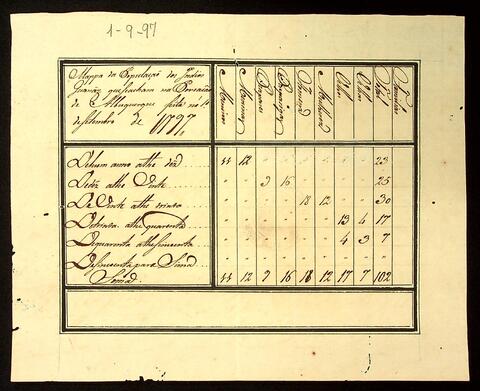 1-9-97
Mappa da População dos Indios
Guanás que se acham na Povoação
de Albuquerque feito no 1º
de Setembro de 1797
Meninos
Meninas
Rapazes
Raparigas
Total
De hum anno athe dés 11 12 " " " " " " 23
De dés athe Vinte " " 9 16 " " " " 25
De Vinte athe trinta " " " " 18 12 " " 30
De trinta athe quarenta " " " " " " 13 4 17
De quarenta athe sincoenta " " " " " " 4 3 7
De sincoenta para Sima
Soma 11 12 9 16 18 12 17 7 102